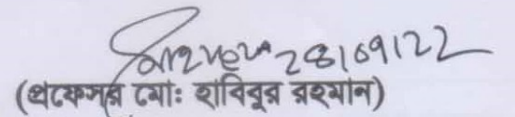 28/09/22
(প্রফেসর মোঃ হাবিবুর রহমান)